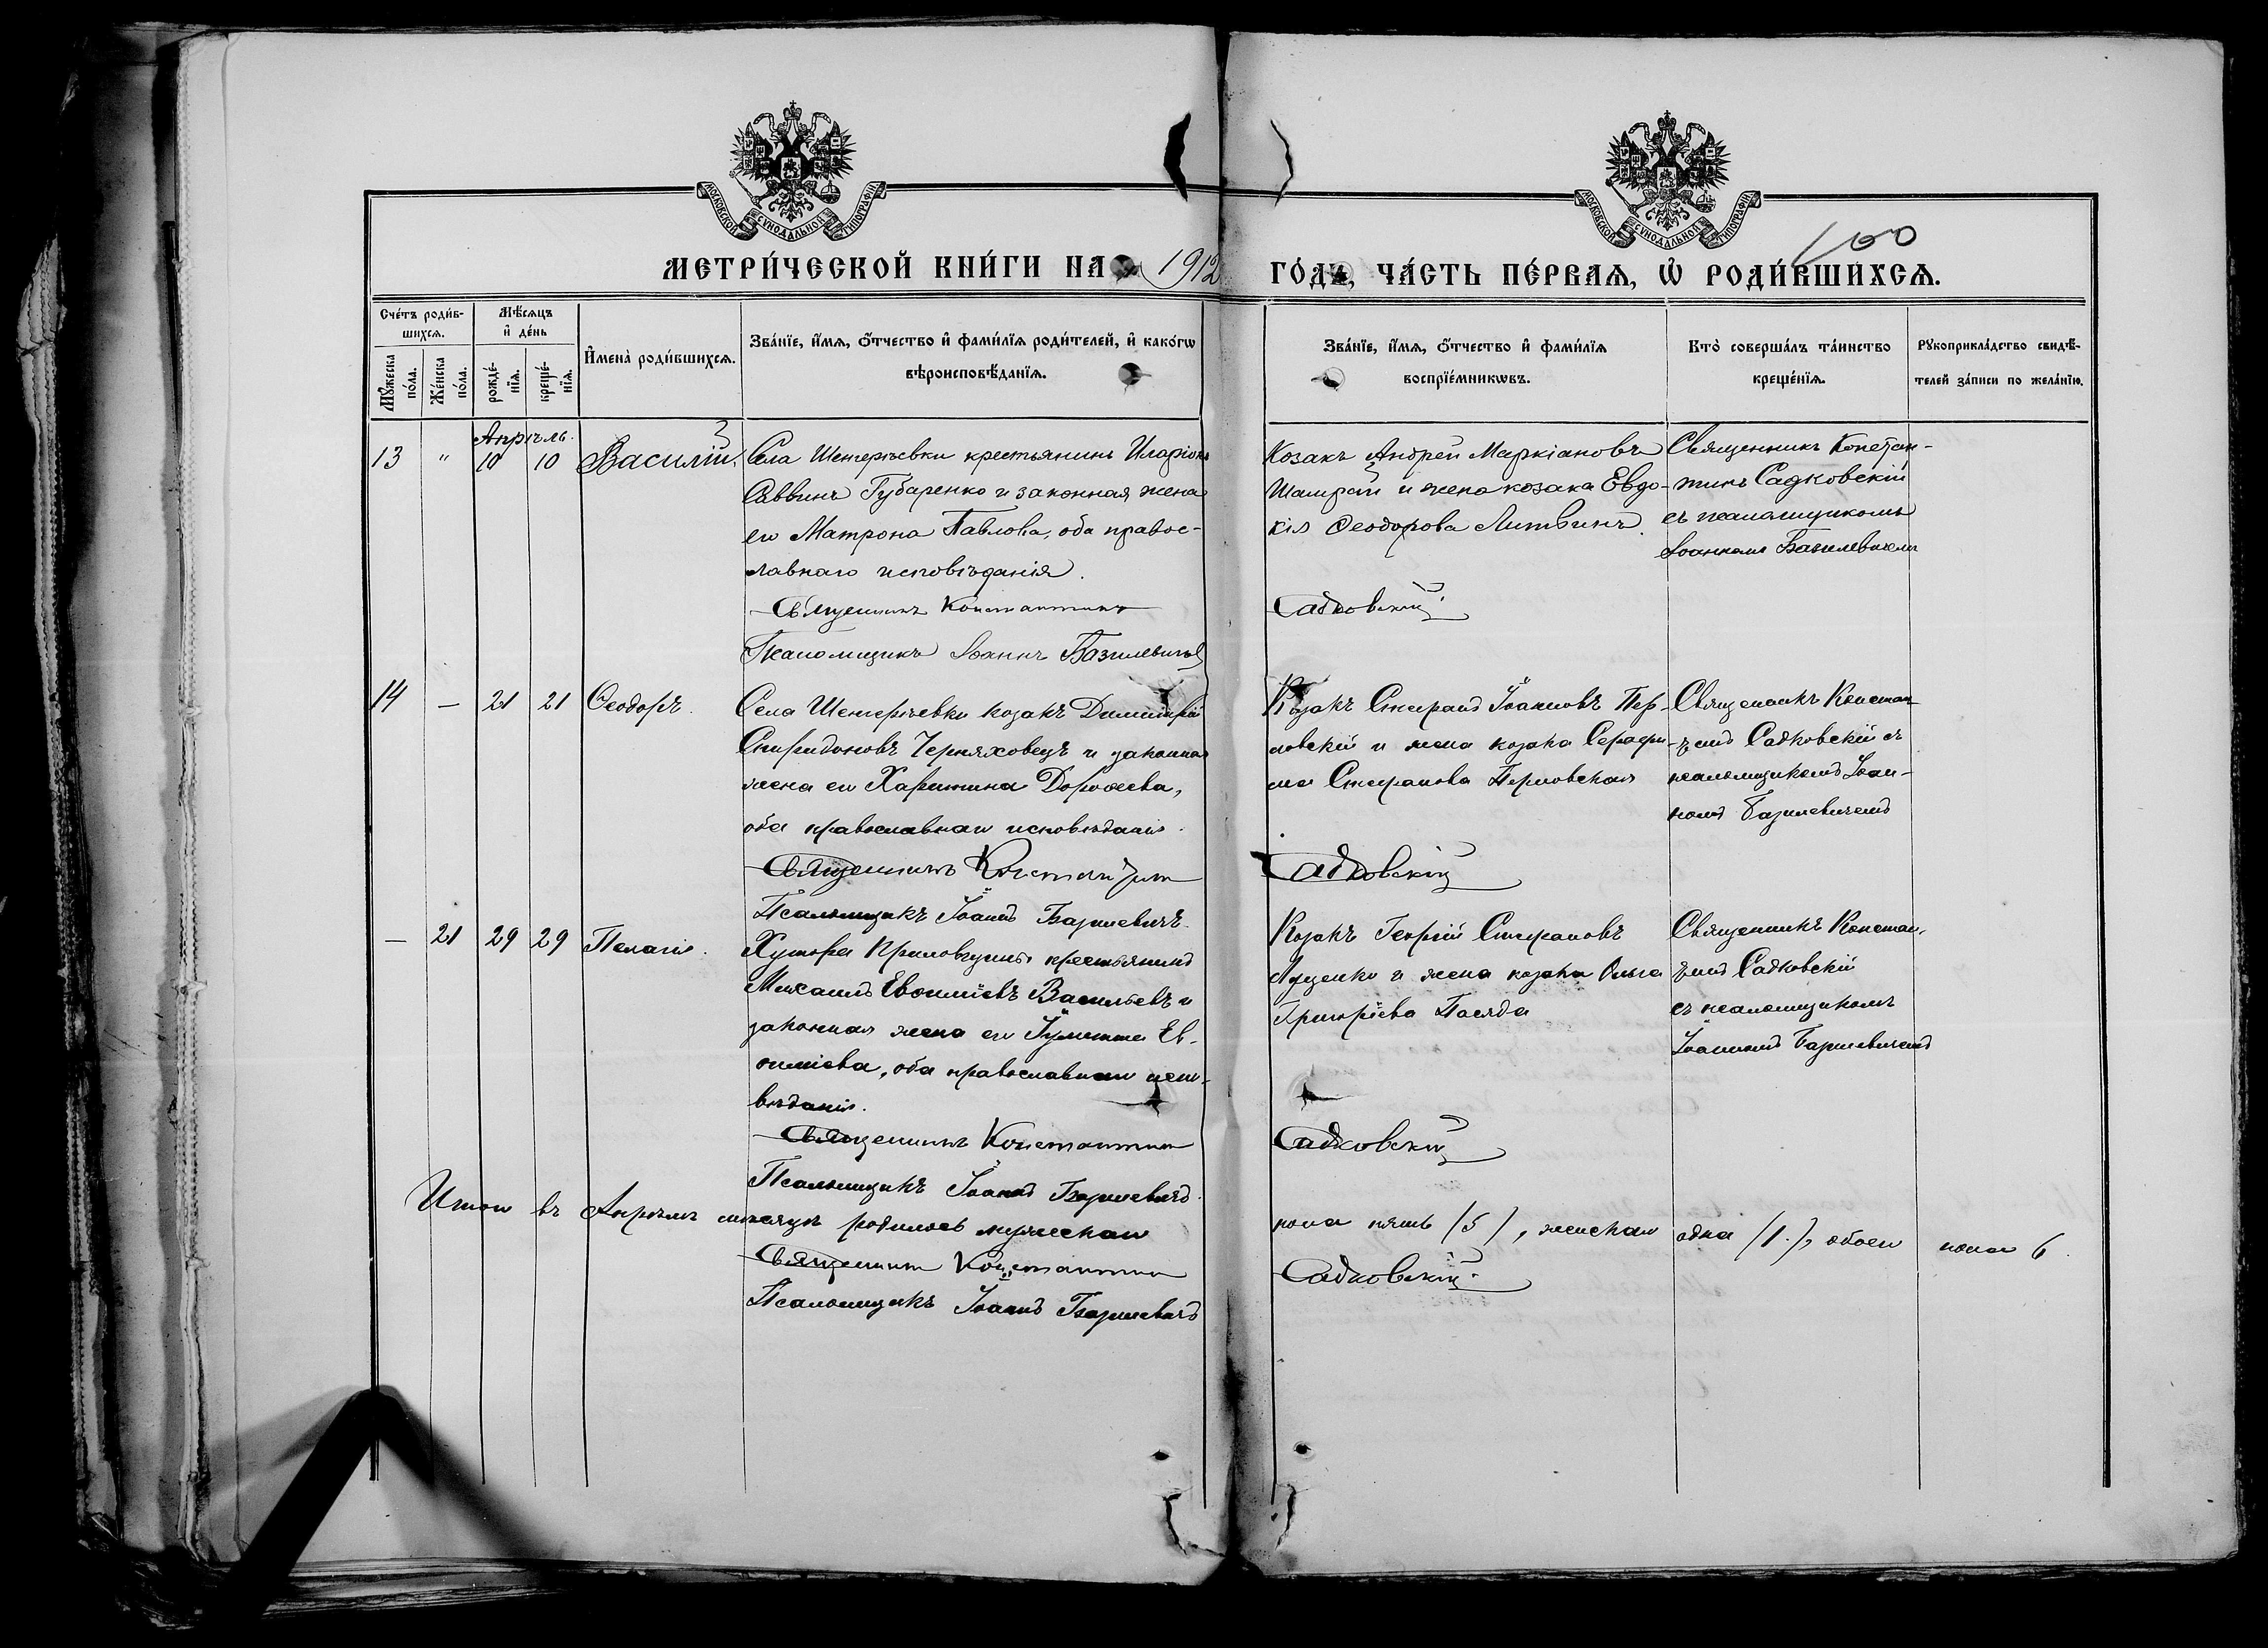 МОСКОВСКОЙ СУНОДАЛЬНОЙ ТИПОГРАФІИ
МОСКОВСКОЙ СУНОДАЛЬНОЙ ТИПОГРАФІИ
100
МЕТРИ́ЧЕСКОЙ КНИ́ГИ НА 1912 ГО́ДЪ, ЧА́СТЬ ПЕ́РВАѦ, Ѡ҆ РОДИ́ВШИХСѦ.
Сче́тъ роди́в-
шихсѧ.
Мꙋ́жеска
по́ла.
Же́нска
по́ла.
Мѣ́сѧцъ
и҆ де́нь
рожде́-
нїѧ.
креще́-
нїѧ.
И҆мена̀ роди́вшихсѧ.
Зва́нїе, и҆́мѧ, ѻ҆́тчество и҆ фами́лїѧ роди́телей, и҆ како́гѡ
вѣроисповѣ́данїѧ.
Зва́нїе, и҆́мѧ, ѻ҆́тчество и҆ фами́лїѧ
воспрїе́мникѡвъ.
Кто̀ соверша́лъ та́инство
креще́нїѧ.
Рꙋкоприкла́дство свидѣ́-
телей за́писи по жела́нїю.
Апрѣль.
13 " 10 10 Василій.
Села Шенгерѣевки крестьянинъ Иларіонъ
Саввинъ Губаренко и законная жена
его Матрона Павлова, оба правос-
лавнаго исповѣданія.
Священникъ Константинъ
Псаломщикъ Іоаннъ Базилевичъ
Козакъ Андрей Маркіановъ
Шамрай и жена козака Евдо-
кія Ѳеодорова Литвинъ.
Садковскій
Священникъ Констан-
тинъ Садковскій
съ псаломщикомъ
Іоанномъ Базилевичемъ
14 — 21 21 Ѳеодоръ.
Села Шенгерѣевки козакъ Димитрій
Спиридоновъ Черняховецъ и законная
жена его Харитина Дороѳеева,
оба православнаго исповѣданія.
Священникъ Константинъ
Псаломщикъ Іоаннъ Базилевичъ.
Козакъ Стефанъ Іоанновъ Пер-
ловскій и жена козака Серафи-
ма Стефанова Перловская
Садковскій
Священникъ Констан-
тинъ Садковскій съ
псаломщикомъ Іоан-
номъ Базилевичемъ
— 21 29 29 Пелагія.
Хутора крестьянинъ
Михаилъ Евѳиміевъ Васильевъ и
законная жена его Іулитта Ев-
ѳиміева, оба православнаго испо-
вѣданія.
Священникъ Константинъ
Псаломщикъ Іоаннъ Базилевичъ.
Козакъ Георгій Стефановъ
и жена козака Ольга
Григоріева
Садковскій
Священникъ Констан-
тинъ Садковскій
съ псаломщикомъ
Іоанномъ Базилевичемъ
Итого въ Апрѣлѣ мѣсяцѣ родилось мужескаго пола пять (5), женскаго одна (1), обоего пола 6.
Священникъ Константинъ Садковскій
Псаломщикъ Іоаннъ Базилевичъ